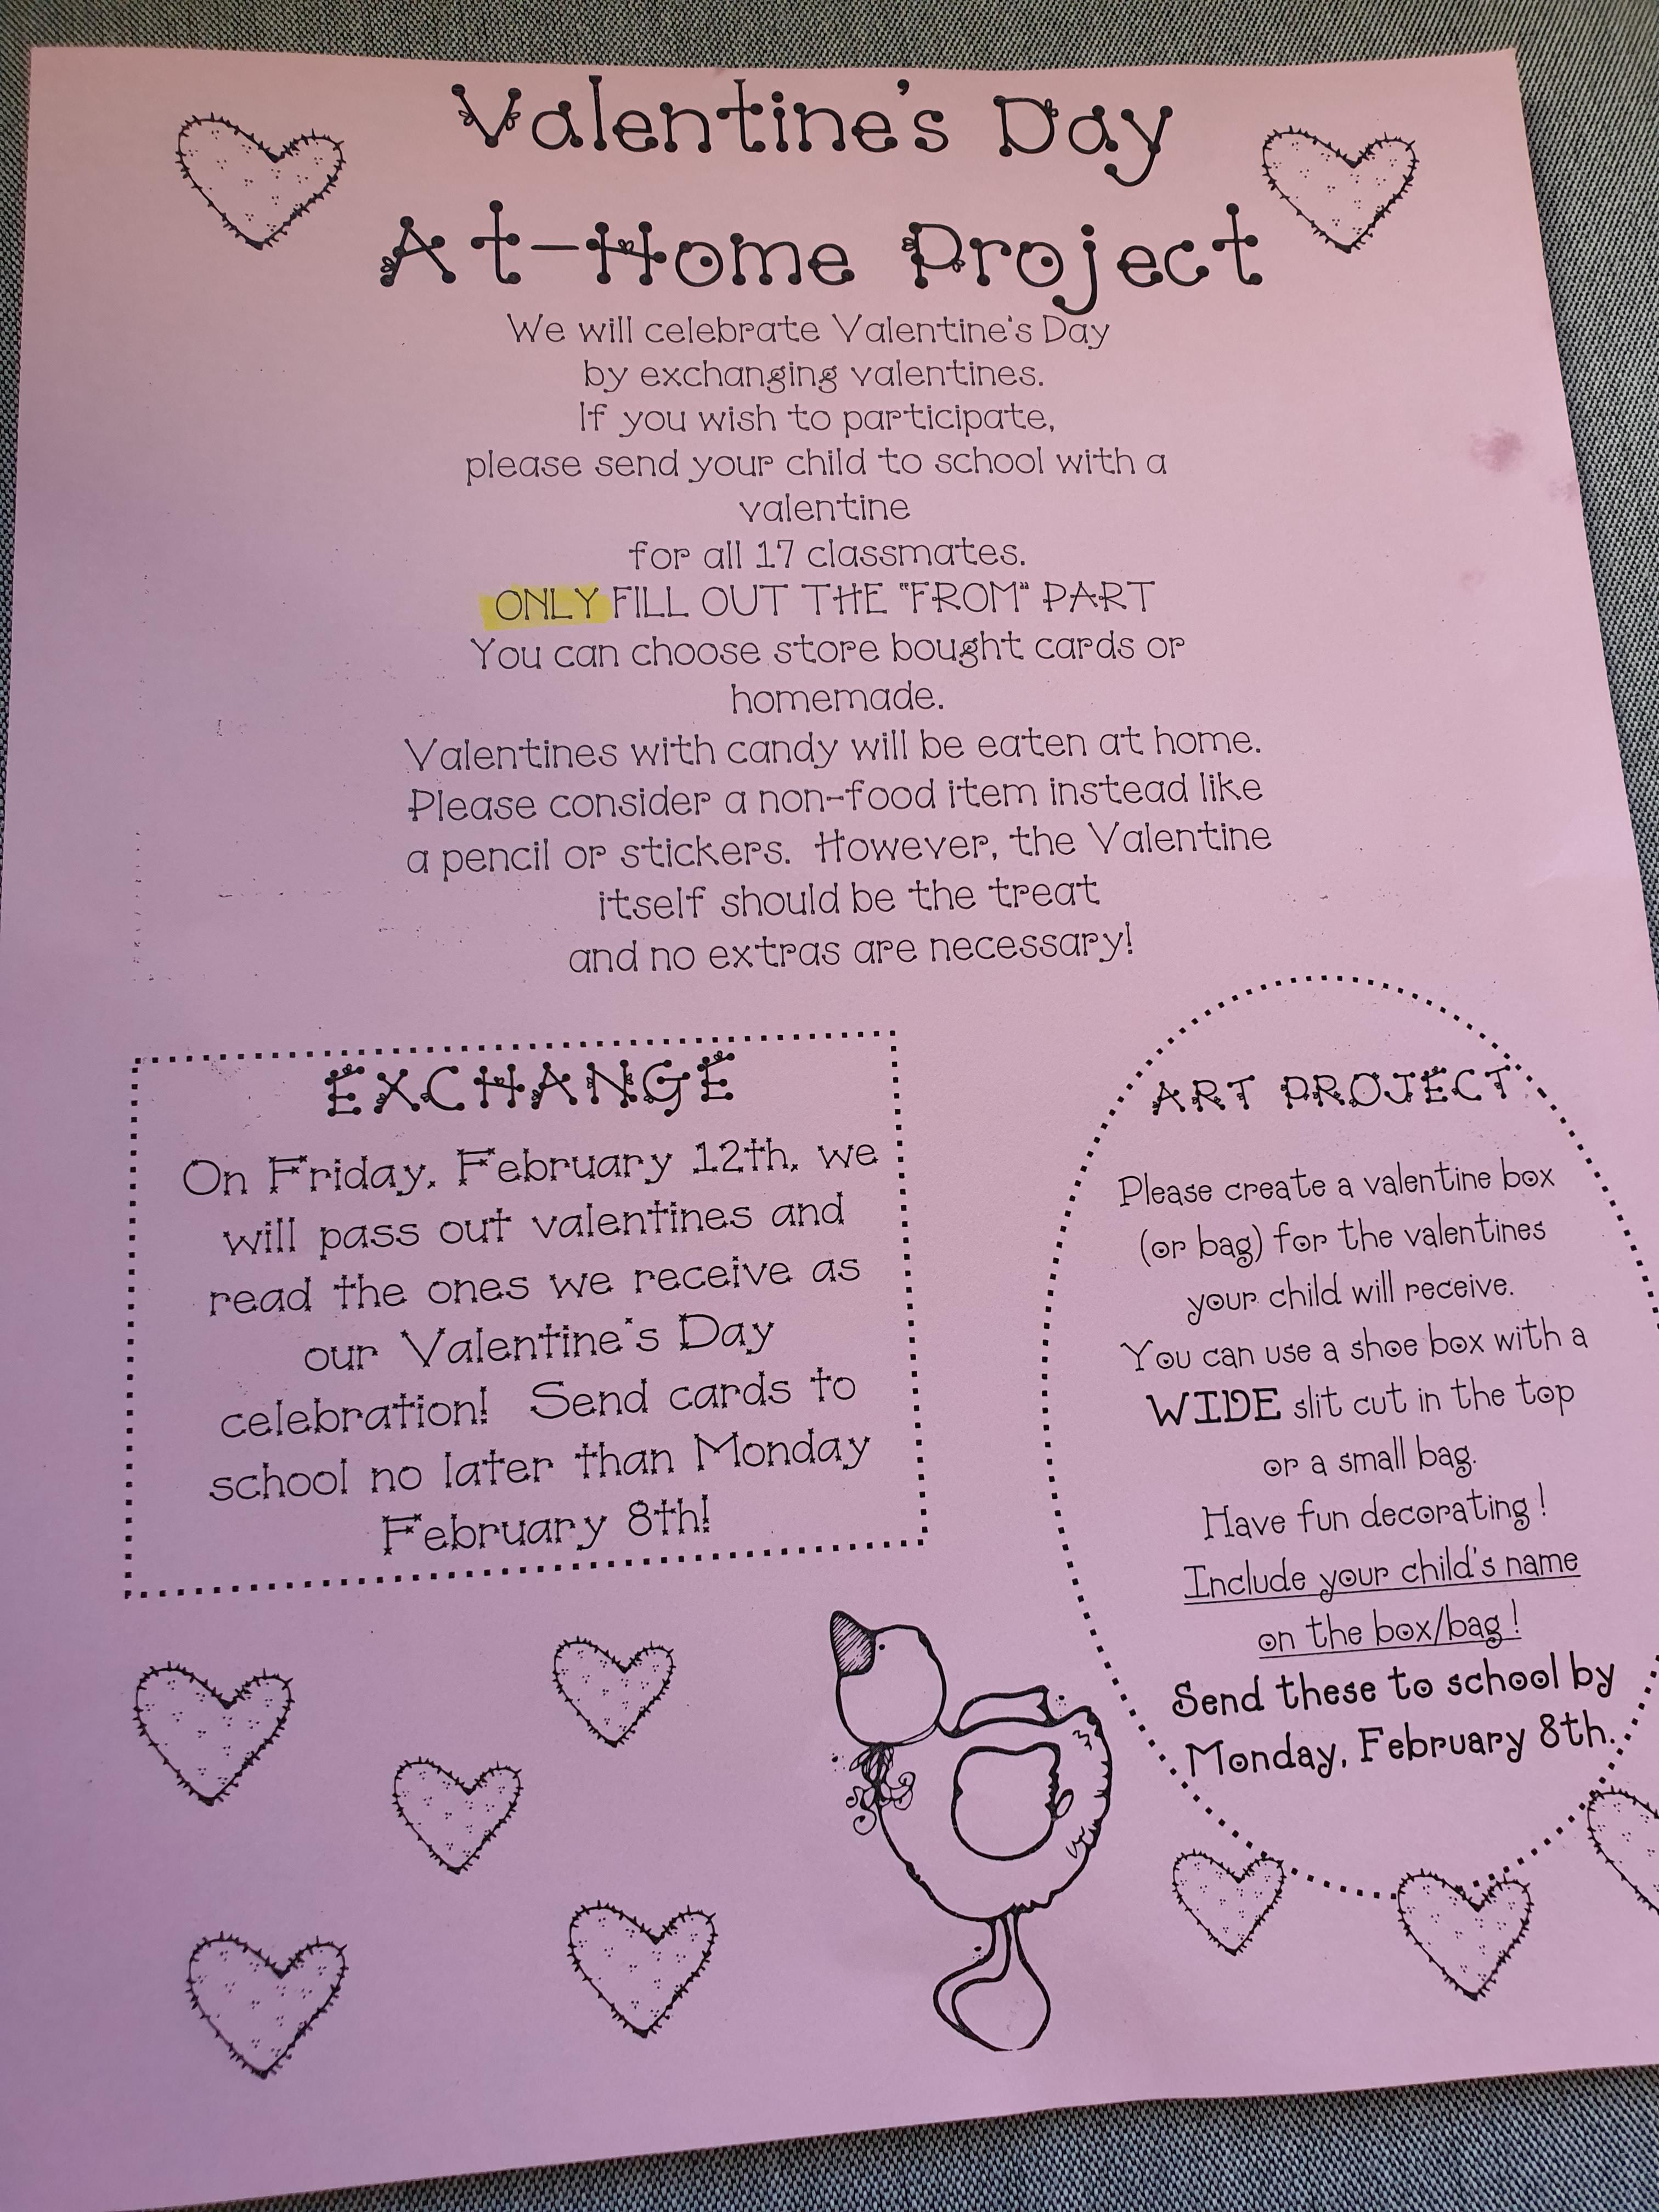 Valentine's Day
At-Home Project
We will celebrate Valentine's Day
by exchanging valentines.
If you wish to participate,
please send your child to school with a
valentine
for all 17 classmates.
ONLY FILL OUT THE "FROM" PART
You can choose store bought cards or
homemade.
Valentines with candy will be eaten at home.
Please consider a non-food item instead like
a pencil or stickers. However, the Valentine
itself should be the treat
and no extras are necessary!
EXCHANGE
On Friday, February 12th, we
will pass out valentines and
read the ones we receive as
our Valentine's Day
celebration! Send cards to
school no later than Monday
February 8th!
ART PROJECT
Please create a valentine box
(or bag) for the valentines
your child will receive.
You can use a shoe box with a
WIDE slit cut in the top
or a small bag.
Have fun decorating!
Include your child's name
on the box/bag!
Send these to school by
Monday, February 8th.